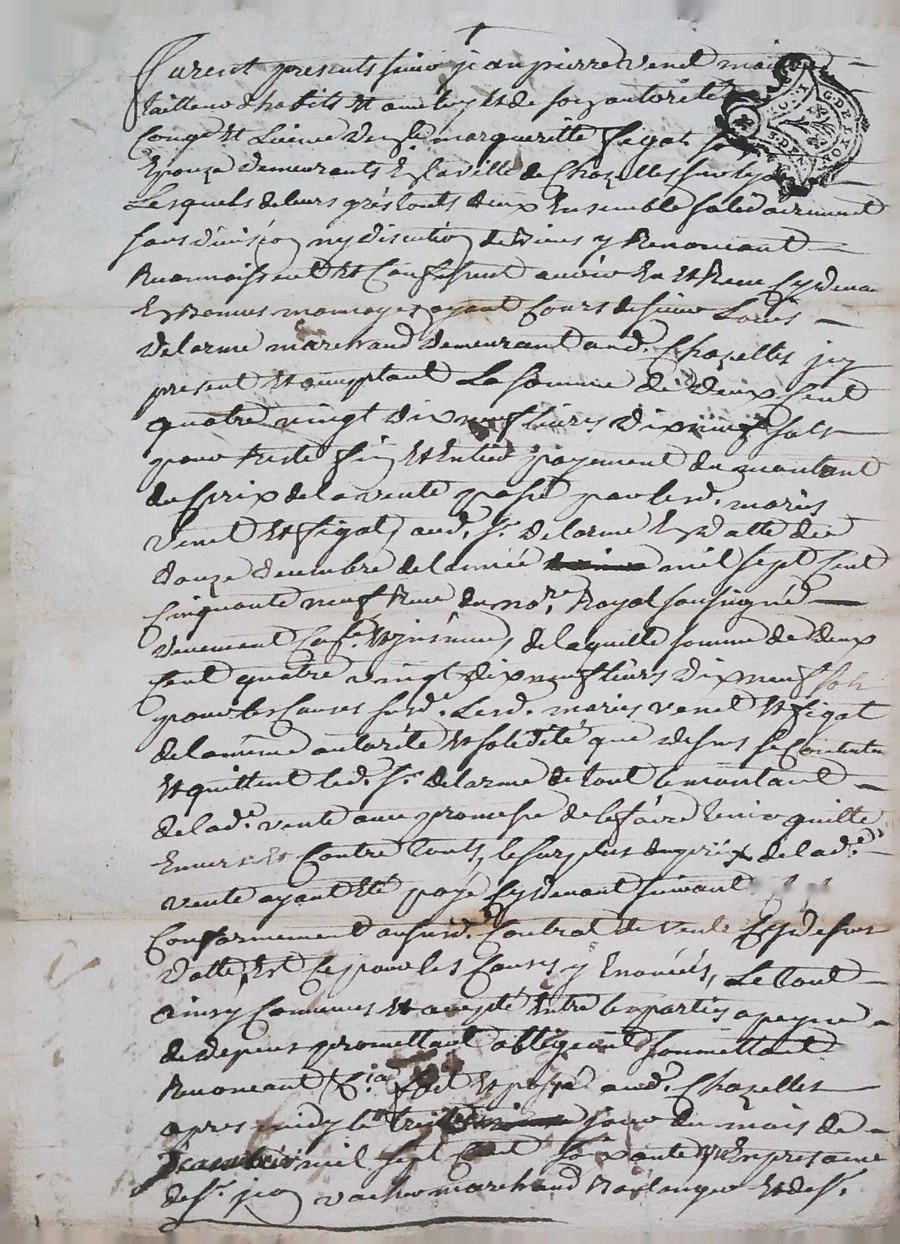 furent presents sieur jean pierre venet maitre
tailleur d'habits et avec luy et de son autorité
Congé et Licence dlle margueritte figat sa
Epouze demeurants En la ville de Chazelles sur lyon
Lesquels de leurs grés touts deux Ensemble solidairement
sans division ny discution de Biens y Renonceant
Reconnaissent et Confessent avoir Eu et Reçu Cy devant
En Bonnes monnoyes ayant Cours de sieur Louis
Delorme marchand demeurant aud. Chazelles jcy
present et acceptant La somme de deux Cent
quatre vingt dix neuf livres dix neuf sols
pour Reste fin et Entier payement du montant
du prix de la vente passé par lesd. mariés
Venet et figat aud. Sr. Delorme En datte du
douze decembre de l'année mil sept Cent
Cinquante neuf Reçu du nore. Royal soussigné
de laquelle somme de deux
Cent quatre vingt dix neuf livres dix neuf sols
pour les Causes susd. Lesd. mariés venet et figat
de la même autorité et solidité que dessus se Contentent
et quittent led. Sr. Delorme de tout le montant
de lad. vente avec promesse de le faire tenir quitte
Envers et Contre touts, le surplus du prix de lad.
vente ayant Eté payé Cy devant suivant
Conformement au susd. Contrat de vente
datte, Et Ce pour les Causes y Enoncées, Le tout
ainsy Convenus et accepté Entre les parties a peyne
de depens promettant obligeant soumettant
Renonceant &ca fait et passé aud. Chazelles
apres midy le jour du mois de
mil sept Cent soixante En presance
de Sr. marchand Boulanger et de Sr.
G. DE LYON